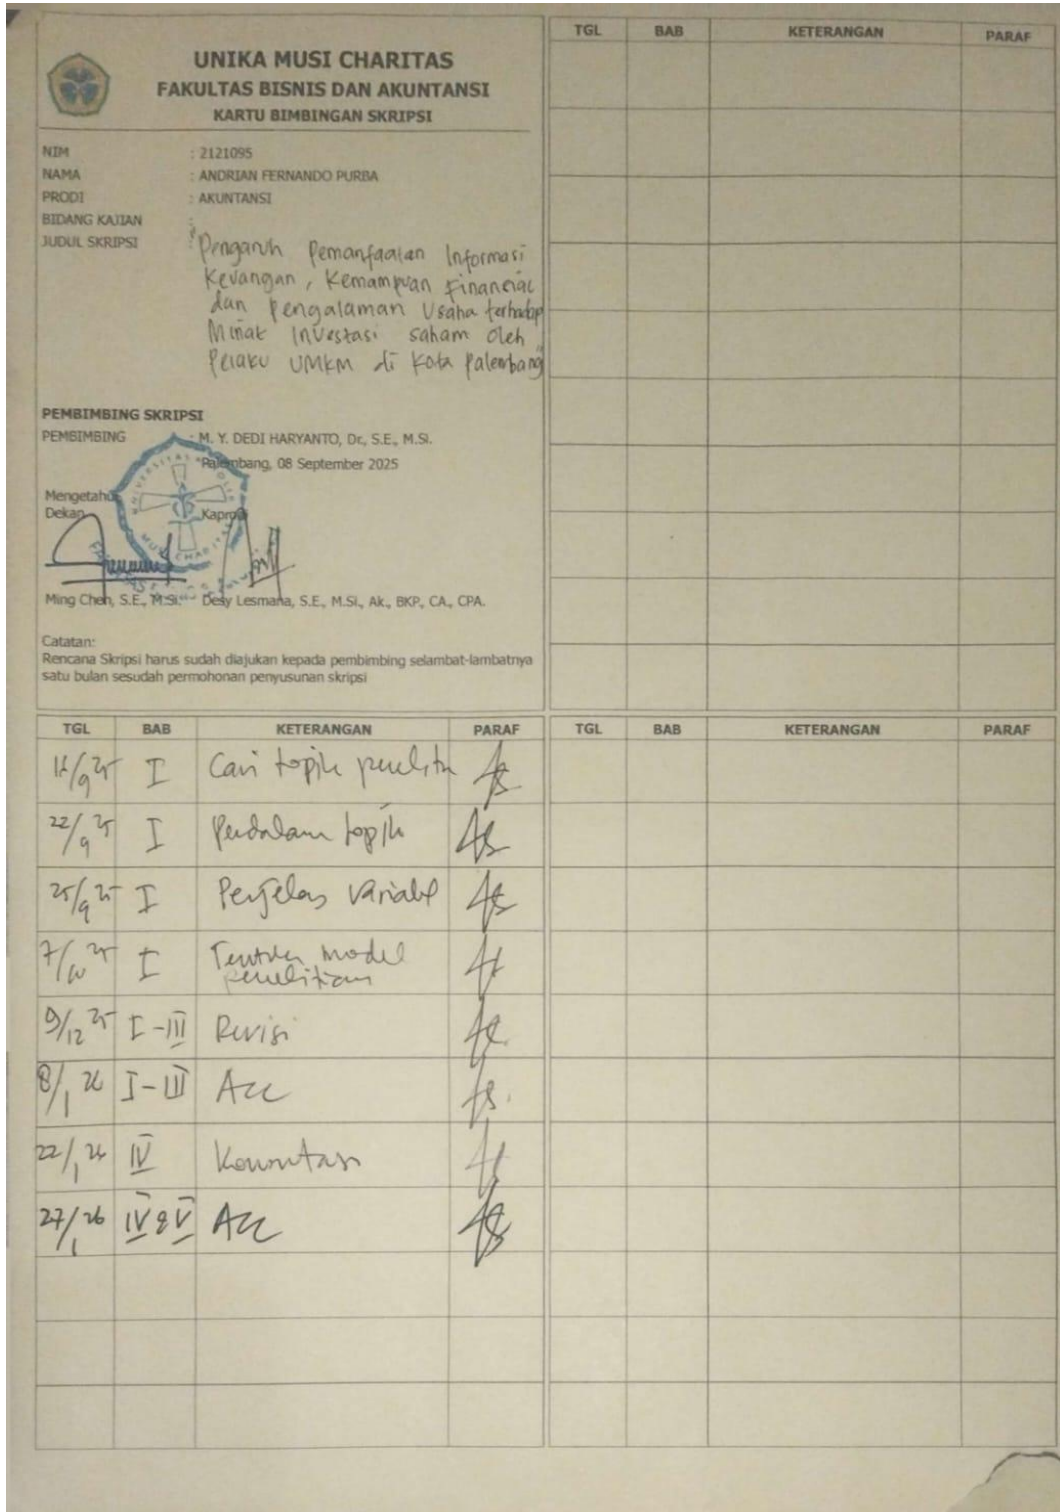 UNIKA MUSI CHARITAS
FAKULTAS BISNIS DAN AKUNTANSI
KARTU BIMBINGAN SKRIPSI
NIM : 2121095
NAMA : ANDRIAN FERNANDO PURBA
PRODI : AKUNTANSI
BIDANG KAJIAN :
JUDUL SKRIPSI : "Pengaruh Pemanfaatan Informasi
Keuangan, Kemampuan Financial
dan Pengalaman Usaha terhadap
Minat Investasi saham oleh
Pelaku UMKM di Kota Palembang"
PEMBIMBING SKRIPSI
PEMBIMBING : M. Y. DEDI HARYANTO, Dr., S.E., M.Si.
Palembang, 08 September 2025
Mengetahui
Dekan Kaprodi
Ming Chen, S.E., M.Si. Desy Lesmana, S.E., M.Si., Ak., BKP., CA., CPA.
Catatan:
Rencana Skripsi harus sudah diajukan kepada pembimbing selambat-lambatnya
satu bulan sesudah permohonan penyusunan skripsi
TGL BAB KETERANGAN PARAF
/9 25 I Cari topik
22/9 25 I topik
25/9 25 I Perjelas Variabel
7/10 25 I model
penelitian
9/12 25 I - III Revisi
8/1 26 I - III Acc
22/1 26 IV
27/1 26 IV & V Acc
TGL BAB KETERANGAN PARAF
TGL BAB KETERANGAN PARAF